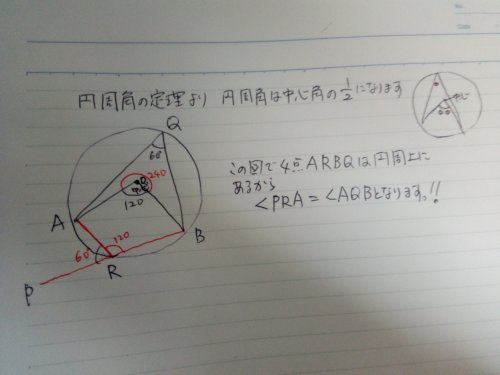 円周角の定理より 円周角は中心角の1/2になります
中心
Q
60°
240
120
この図で4点ARBQは円周上に
あるから
∠PRA=∠AQBとなります。!!
A
B
60°
120
R
P